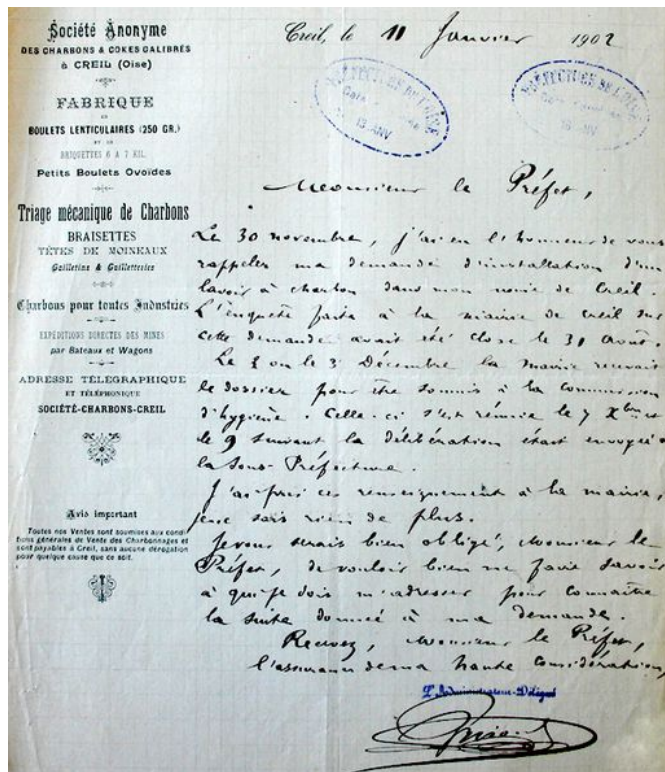 Société Anonyme
DES CHARBONS & COKES CALIBRÉS
à CREIL (Oise)
FABRIQUE
DE
BOULETS LENTICULAIRES (250 GR.)
ET DE
BRIQUETTES 6 A 7 KIL.
Petits Boulets Ovoïdes
Triage mécanique de Charbons
BRAISETTES
TÊTES DE MOINEAUX
Gailletins & Gailletteries
Charbons pour toutes Industries
EXPÉDITIONS DIRECTES DES MINES
par Bateaux et Wagons
ADRESSE TÉLÉGRAPHIQUE
ET TÉLÉPHONIQUE
SOCIÉTÉ-CHARBONS-CREIL
Avis important
Toutes nos Ventes sont soumises aux condi-
tions générales de Vente des Charbonnages et
sont payables à Creil, sans aucune dérogation
pour quelque cause que ce soit.
Creil, le 11 Janvier 1902
PRÉFECTURE DE L'OISE
13 JANV
PRÉFECTURE DE L'OISE
13 JANV
Monsieur le Préfet,
Le 30 novembre, j'ai eu l'honneur de vous
rappeler ma demande d'installation d'un
lavoir à charbon dans mon usine de Creil.
L'enquête faite à la mairie de Creil sur
cette demande avait été close le 31 août.
Le 2 ou le 3 Décembre la mairie recevait
le dossier pour être soumis à la commission
d'hygiène. Celle-ci s'est réunie le 7 Xbre et
le 9 suivant la délibération était envoyée à
la Sous-Préfecture.
J'ai pris ces renseignements à la mairie,
je ne sais rien de plus.
Je vous serais bien obligé, Monsieur le
Préfet, de vouloir bien me faire savoir
à qui je dois m'adresser pour connaître
la suite donnée à ma demande.
Recevez, Monsieur le Préfet,
l'assurance de ma haute considération,
L'Administrateur-Délégué